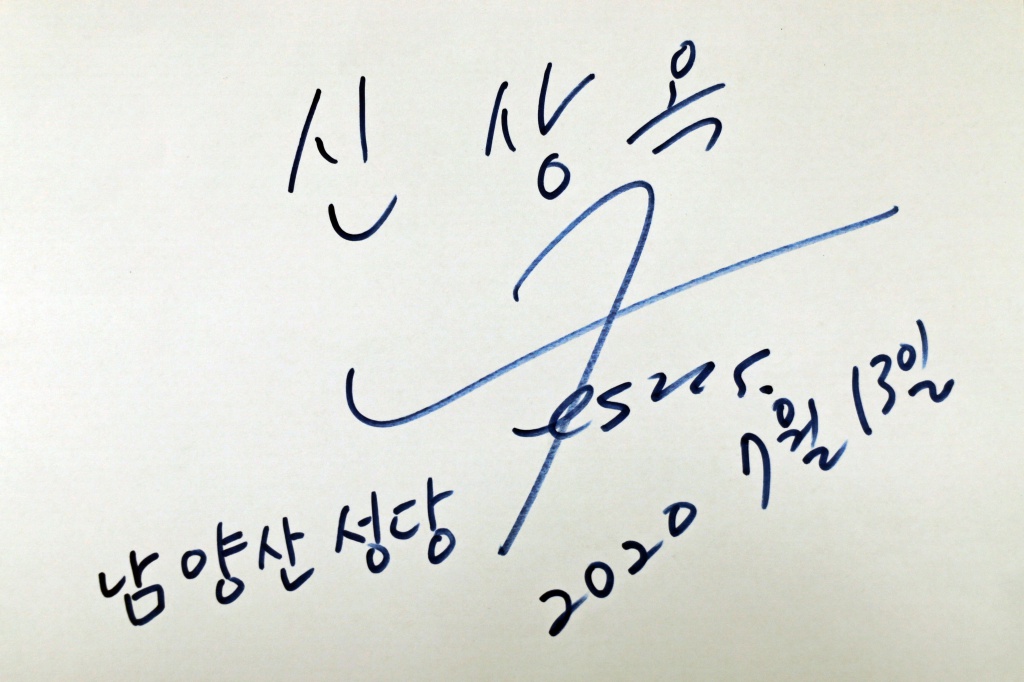 신 상 옥
Jesus.
남양산 성당
2020 7월 13일